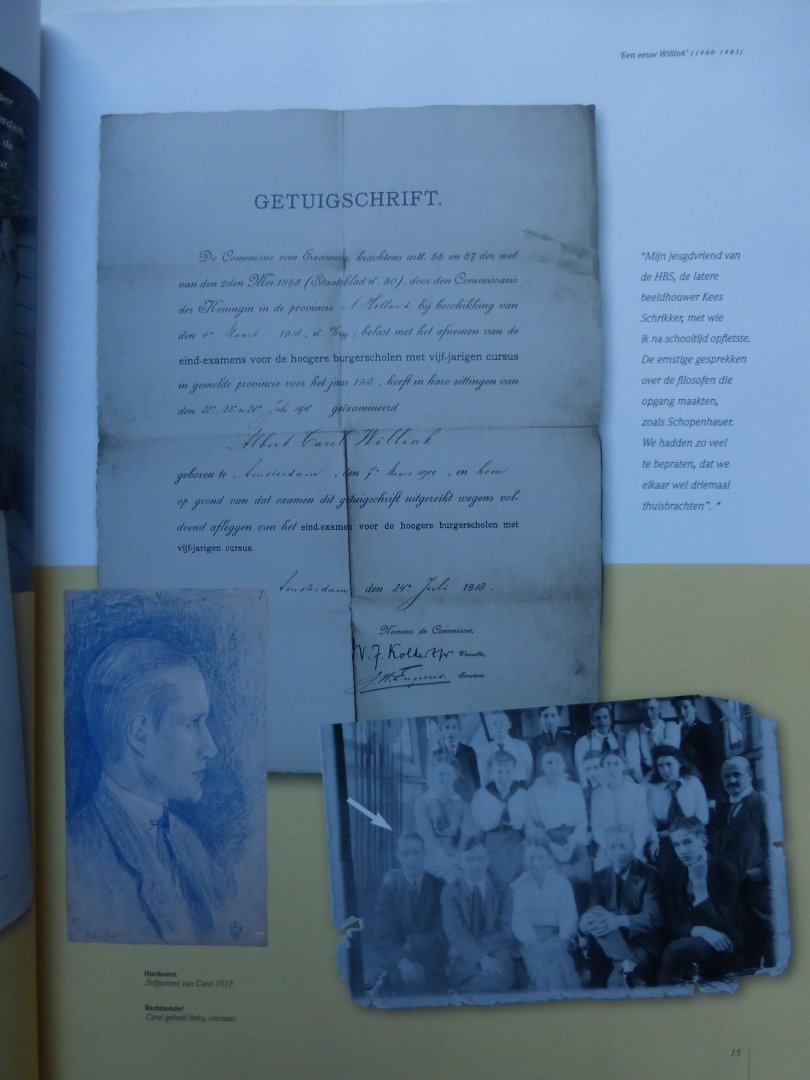 'Een eeuw Willink' (1900-1983)
GETUIGSCHRIFT.
De Commissie van Examens, krachtens artt. 55 en 57 der wet
van den 2den Mei 1863 (Staatsblad no. 50), door den Commissaris
der Koningin in de provincie N Holland bij beschikking van
den 4en Maart 1918, belast met het afnemen van de
eind-examens voor de hoogere burgerscholen met vijf-jarigen cursus
in gemelde provincie voor het jaar 1918, heeft in hare zittingen van
den 22e, 23e en 24e Juli 1918 geëxamineerd
Albert Carel Willink
geboren te Amsterdam, den 7en Maart 1900, en hem
op grond van dat examen dit getuigschrift uitgereikt wegens vol-
doend afleggen van het eind-examen voor de hoogere burgerscholen met
vijf-jarigen cursus.
Amsterdam den 24en Juli 1918.
Namens de Commissie.
"Mijn jeugdvriend van
de HBS, de latere
beeldhouwer Kees
Schrikker, met wie
ik na schooltijd opfietste.
De ernstige gesprekken
over de filosofen die
opgang maakten,
zoals Schopenhauer.
We hadden zo veel
te bepraten, dat we
elkaar wel driemaal
thuisbrachten". *
Hierboven
Zelfportret van Carel 1917.
Rechtsonder
Carel geheel links, vooraan.
15